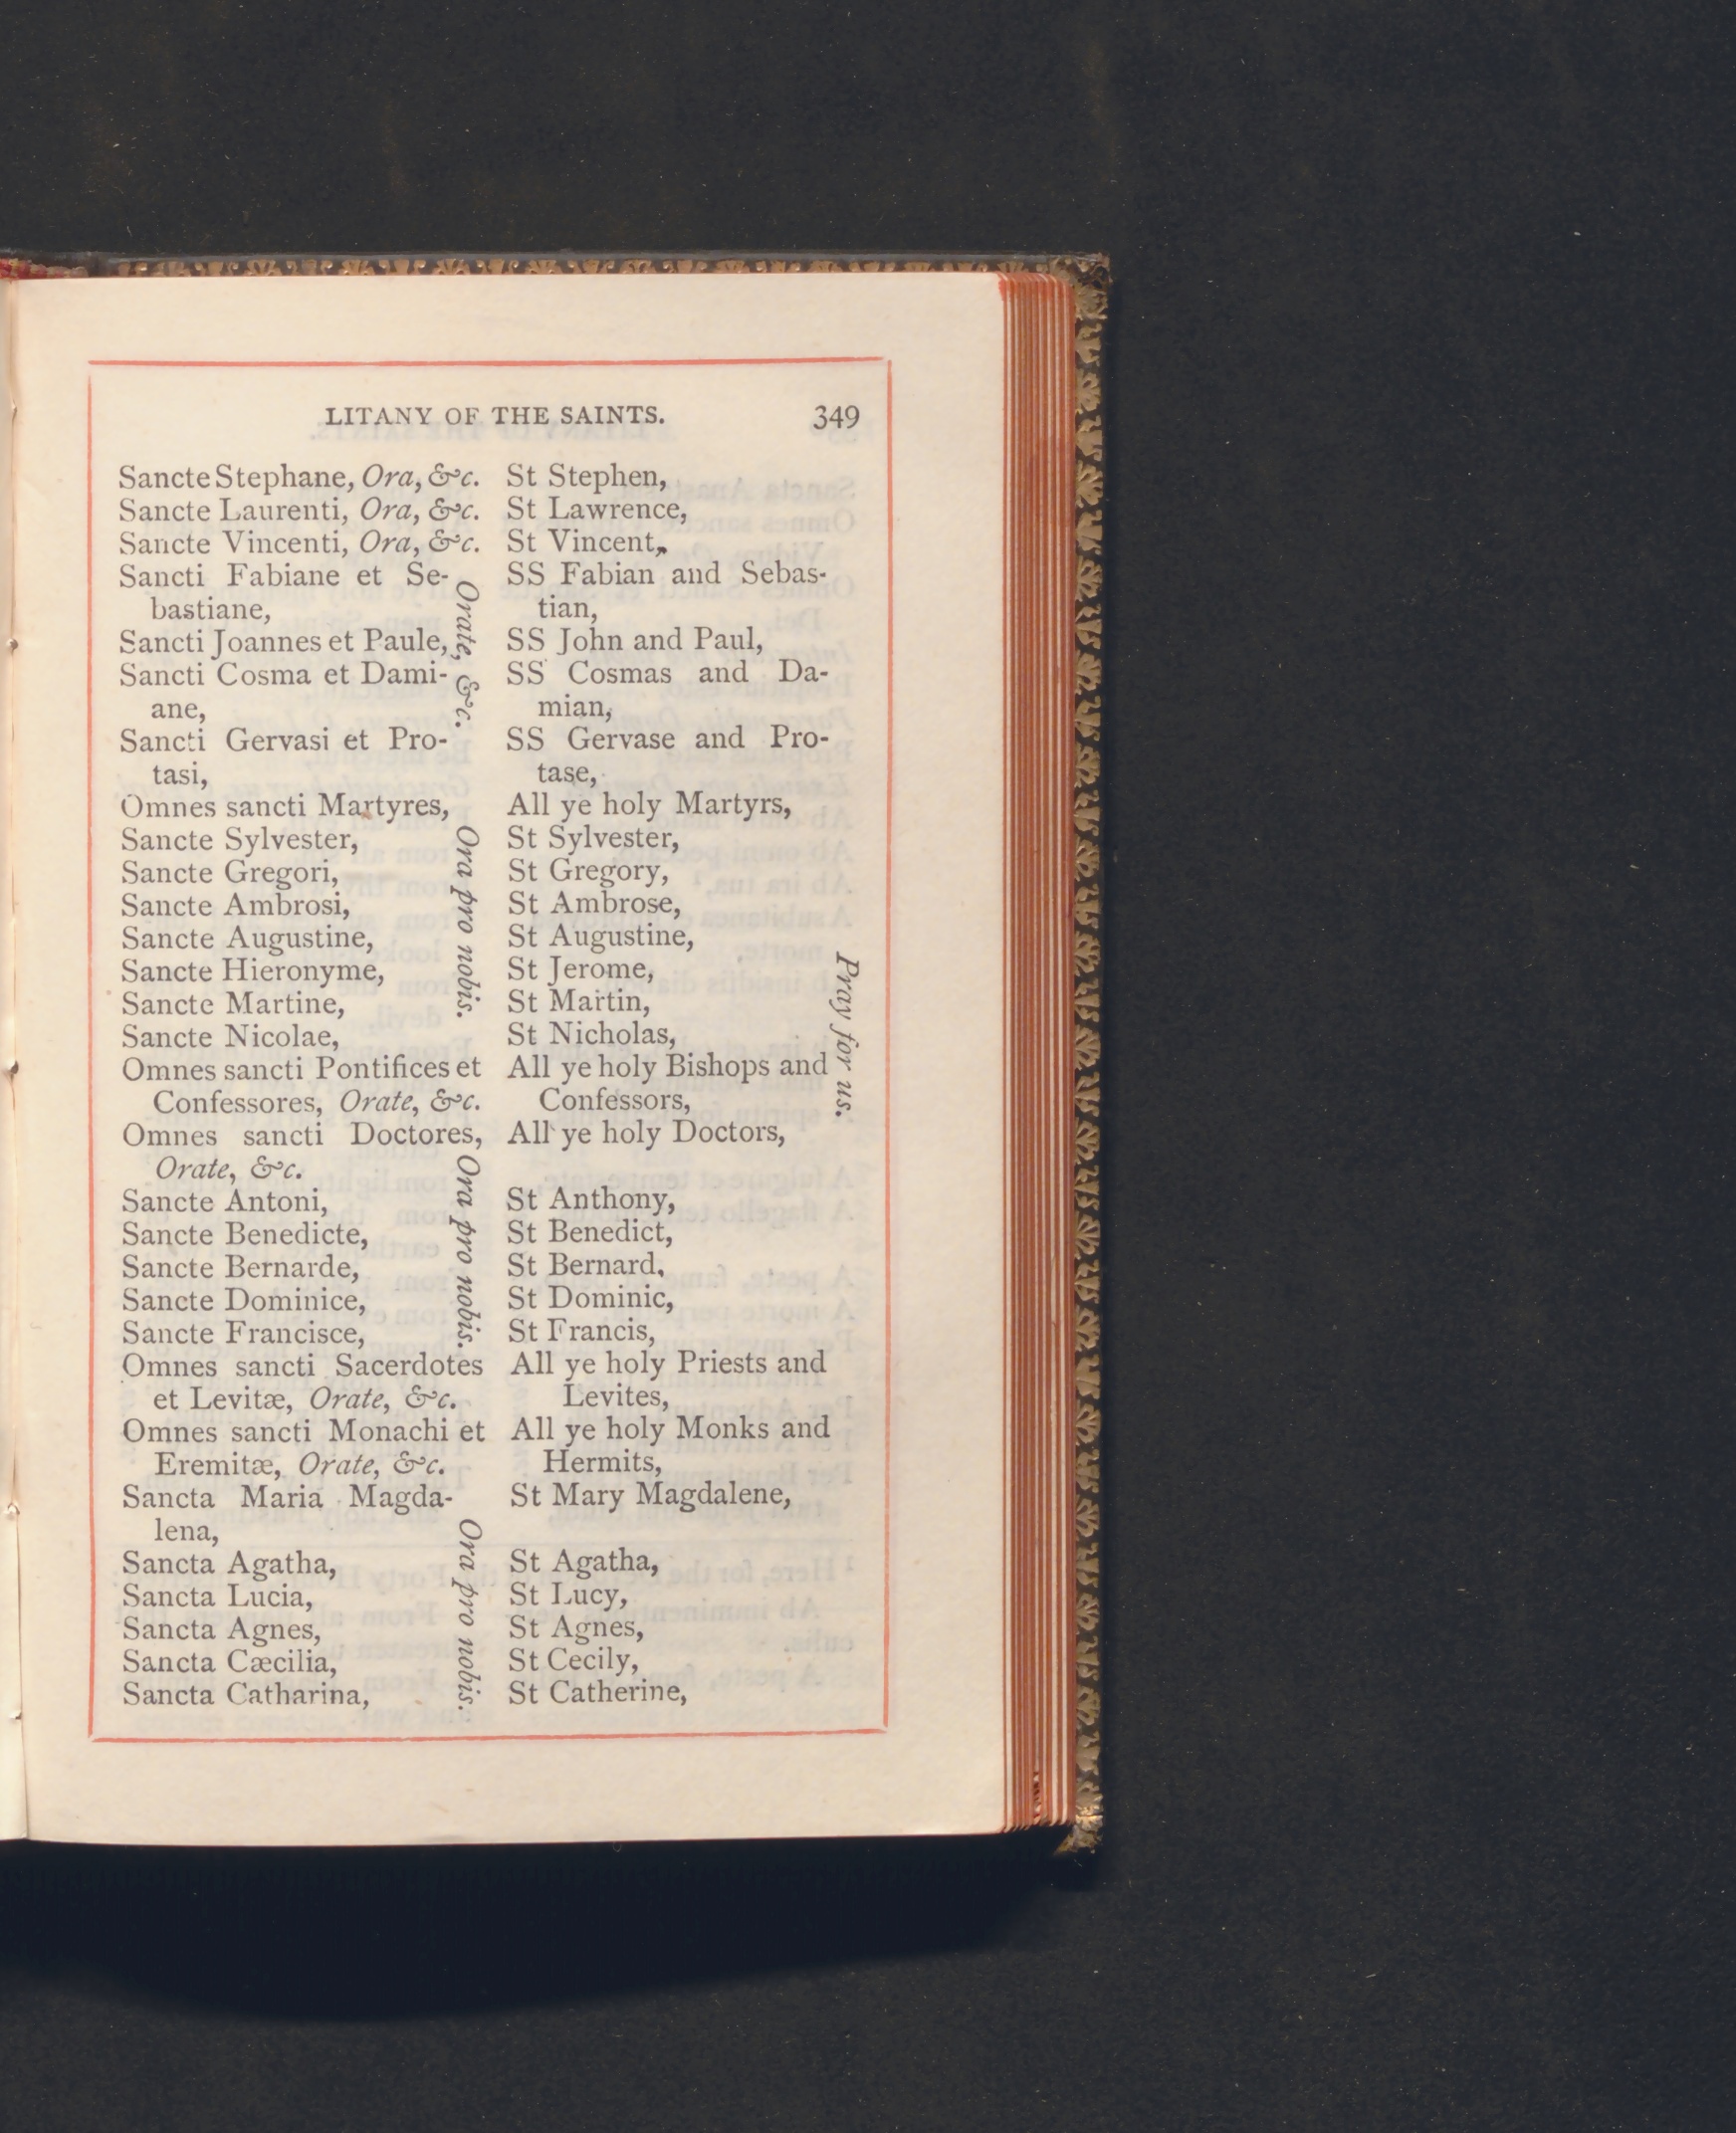 LITANY OF THE SAINTS. 349
Sancte Stephane, Ora, &c.
Sancte Laurenti, Ora, &c.
Sancte Vincenti, Ora, &c.
Sancti Fabiane et Se-
bastiane,
Sancti Joannes et Paule,
Sancti Cosma et Dami-
ane,
Sancti Gervasi et Pro-
tasi,
Orate, &c.
Omnes sancti Martyres,
Sancte Sylvester,
Sancte Gregori,
Sancte Ambrosi,
Sancte Augustine,
Sancte Hieronyme,
Sancte Martine,
Sancte Nicolae,
Ora pro nobis.
Omnes sancti Pontifices et
Confessores, Orate, &c.
Omnes sancti Doctores,
Orate, &c.
Sancte Antoni,
Sancte Benedicte,
Sancte Bernarde,
Sancte Dominice,
Sancte Francisce,
Ora pro nobis.
Omnes sancti Sacerdotes
et Levitæ, Orate, &c.
Omnes sancti Monachi et
Eremitæ, Orate, &c.
Sancta Maria Magda-
lena,
Sancta Agatha,
Sancta Lucia,
Sancta Agnes,
Sancta Cæcilia,
Sancta Catharina,
Ora pro nobis.
St Stephen,
St Lawrence,
St Vincent,
SS Fabian and Sebas-
tian,
SS John and Paul,
SS Cosmas and Da-
mian,
SS Gervase and Pro-
tase,
All ye holy Martyrs,
St Sylvester,
St Gregory,
St Ambrose,
St Augustine,
St Jerome,
St Martin,
St Nicholas,
All ye holy Bishops and
Confessors,
All ye holy Doctors,
St Anthony,
St Benedict,
St Bernard,
St Dominic,
St Francis,
All ye holy Priests and
Levites,
All ye holy Monks and
Hermits,
St Mary Magdalene,
St Agatha,
St Lucy,
St Agnes,
St Cecily,
St Catherine,
Pray for us.